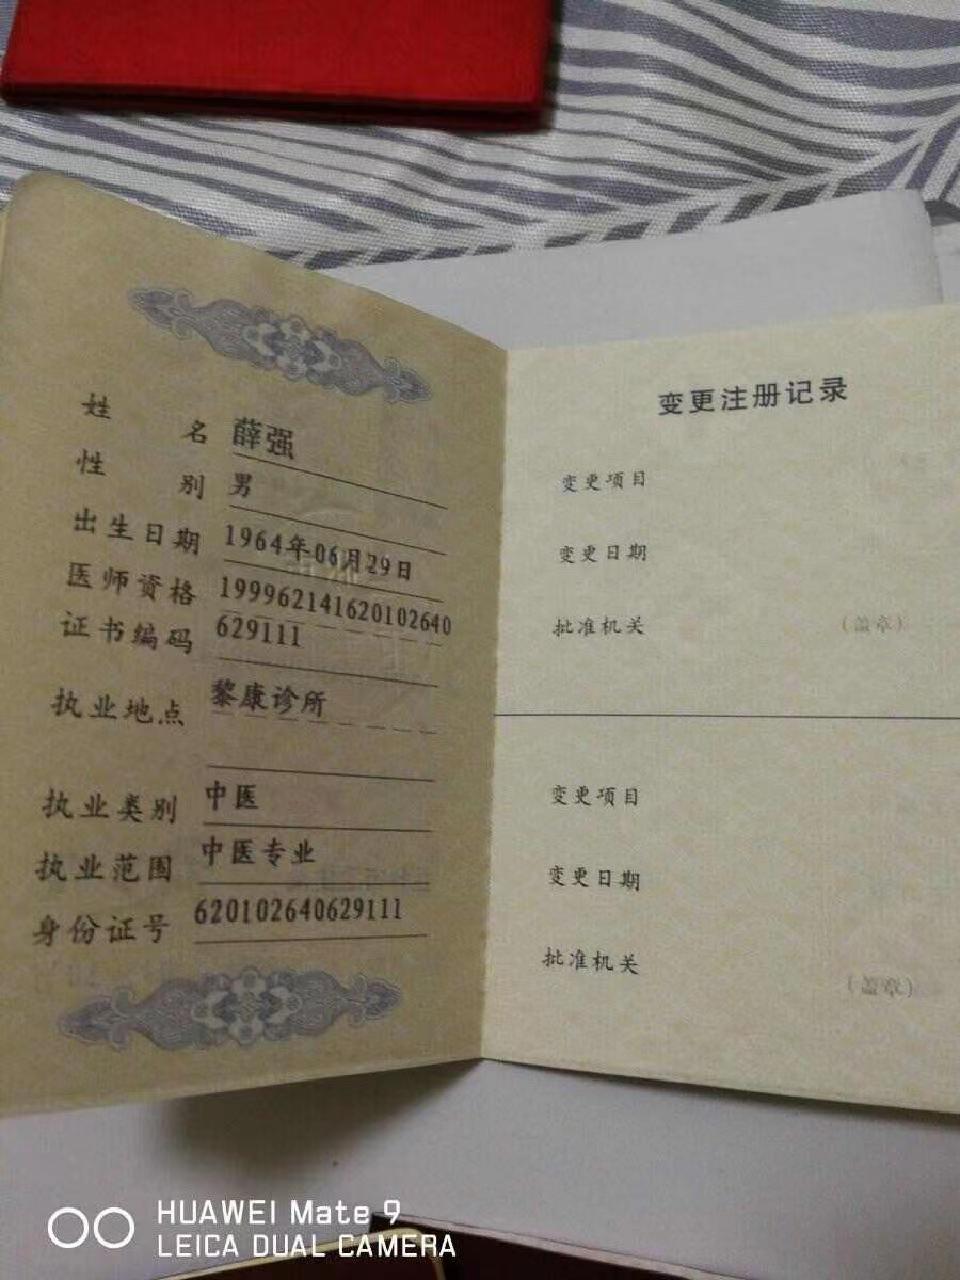 姓名 薛强
性别 男
出生日期 1964年06月29日
医师资格 199962141620102640
证书编码 629111
执业地点 黎康诊所
执业类别 中医
执业范围 中医专业
身份证号 620102640629111
变更注册记录
变更项目
变更日期
批准机关 (盖章)
变更项目
变更日期
批准机关
(盖章)
HUAWEI Mate 9
LEICA DUAL CAMERA